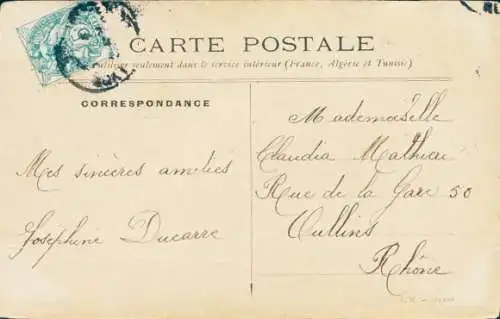 CARTE POSTALE
utiliser seulement dans le service intérieur (France, Algérie et Tunisie)
CORRESPONDANCE
Mes sincères amitiés
Joséphine Ducarre
Mademoiselle
Claudia Mathieu
Rue de la Gare 50
Oullins
Rhône